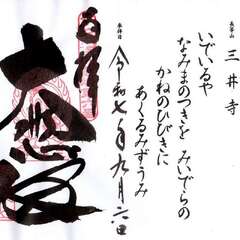 長等山
三井寺
いでいるや
なみまのつきを みいでらの
かねのひびきに
あくるみずうみ
奉拝日
令和七年九月六日
奉拝
大悲殿